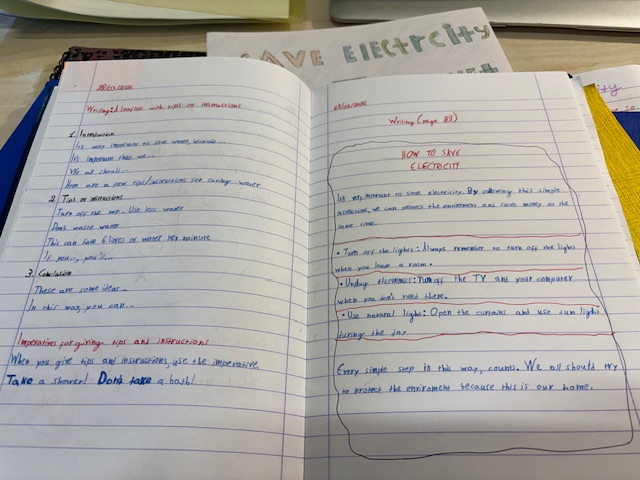 SAVE ElEctrcity
Writing: A leaflet with tips or instructions
1. Introduction
It's very important to save water, because...
It's important that we...
We all should...
Here are a few tips/instructions for saving water
2. Tips or instructions
Turn off the . Use less water
Don't waste water
This can save 6 litres of water per minute
If you..., you'll...
3. Conclusion
These are some ideas...
In this way, you can...
Imperatives for giving tips and instructions
When you give tips and instructions, use the imperative.
Take a shower! Don't take a bath!
Writing (page 83)
HOW TO SAVE
ELECTRICITY
It's very important to save electricity. By following this simple
instructions, we can protect the enviroment and save money at the
same time.
• Turn off the lights: Always remember to turn off the lights
when you leave a room.
• Unplug electronics: Turn off the TV and your computer
when you don't need them.
• Use natural light: Open the curtains and use sun light
during the day
Every simple step in this way, counts. We all should try
to protect the enviroment because this is our home.